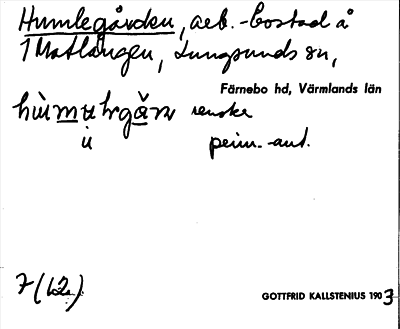 Humlegården, arb.-bostad å
1 Matlången, Lungsunds sn,
Färnebo hd, Värmlands län
renske
prim.-ant.
7 (b2)
GOTTFRID KALLSTENIUS 1903